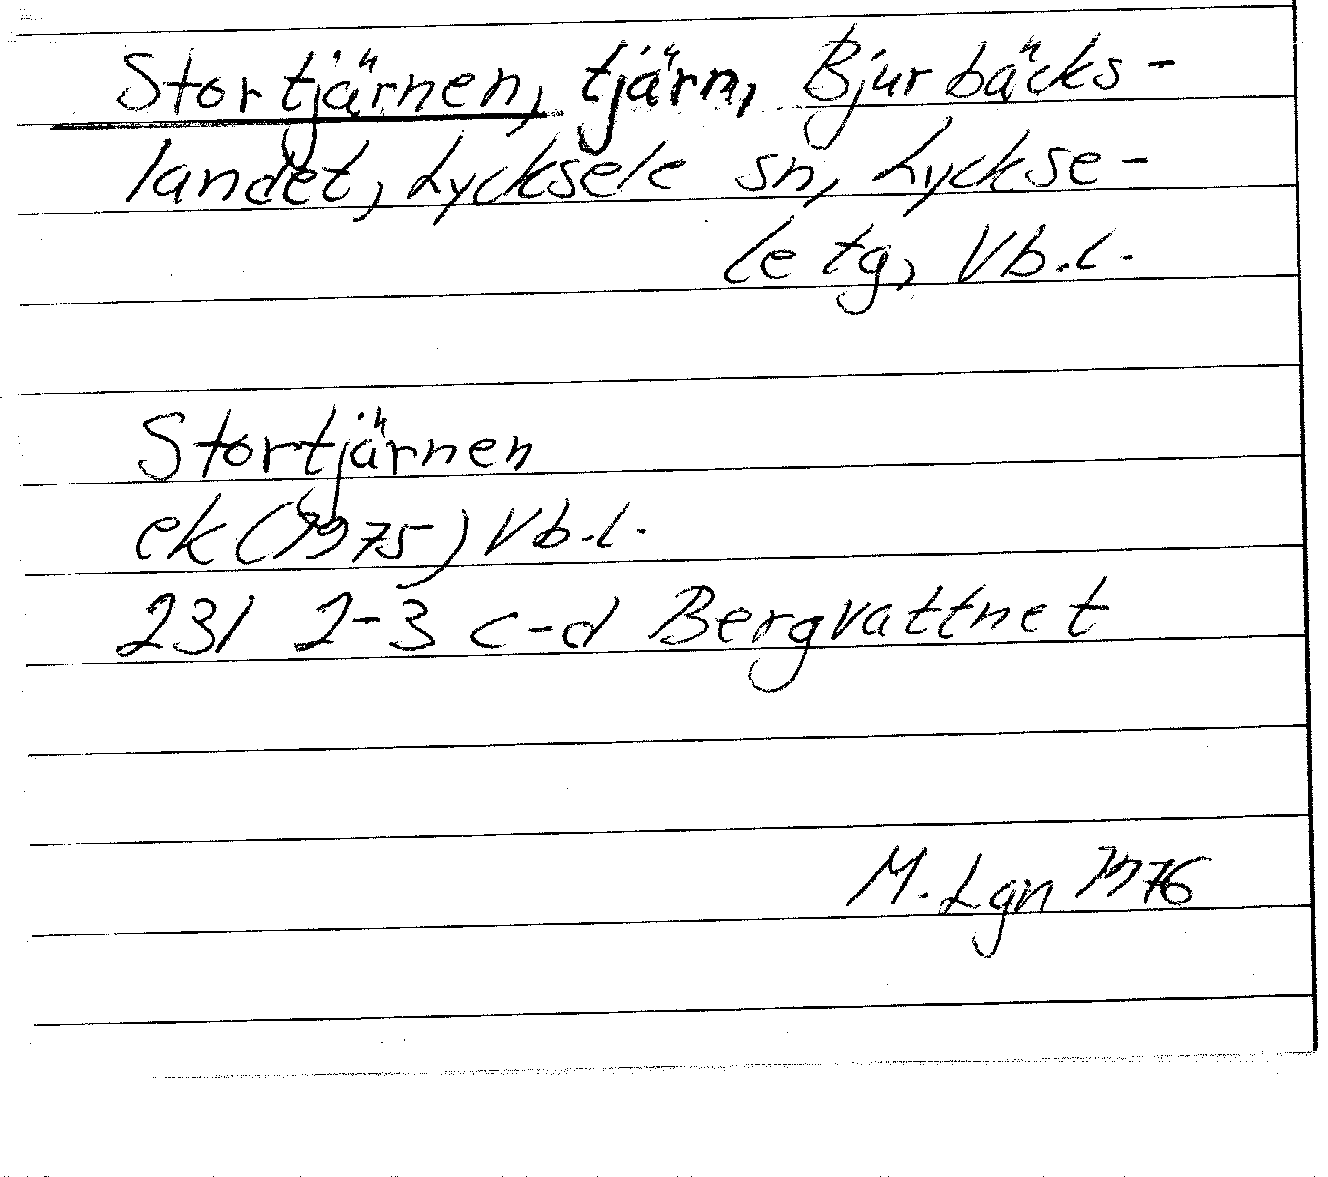 Stortjärnen, tjärn, Bjurbäcks-
landet, Lycksele sn, Lyckse-
le tg, Vb.l.
Stortjärnen
ek (1975) Vb.l.
23I 2-3 c-d Bergvattnet
M. Lgn 1976